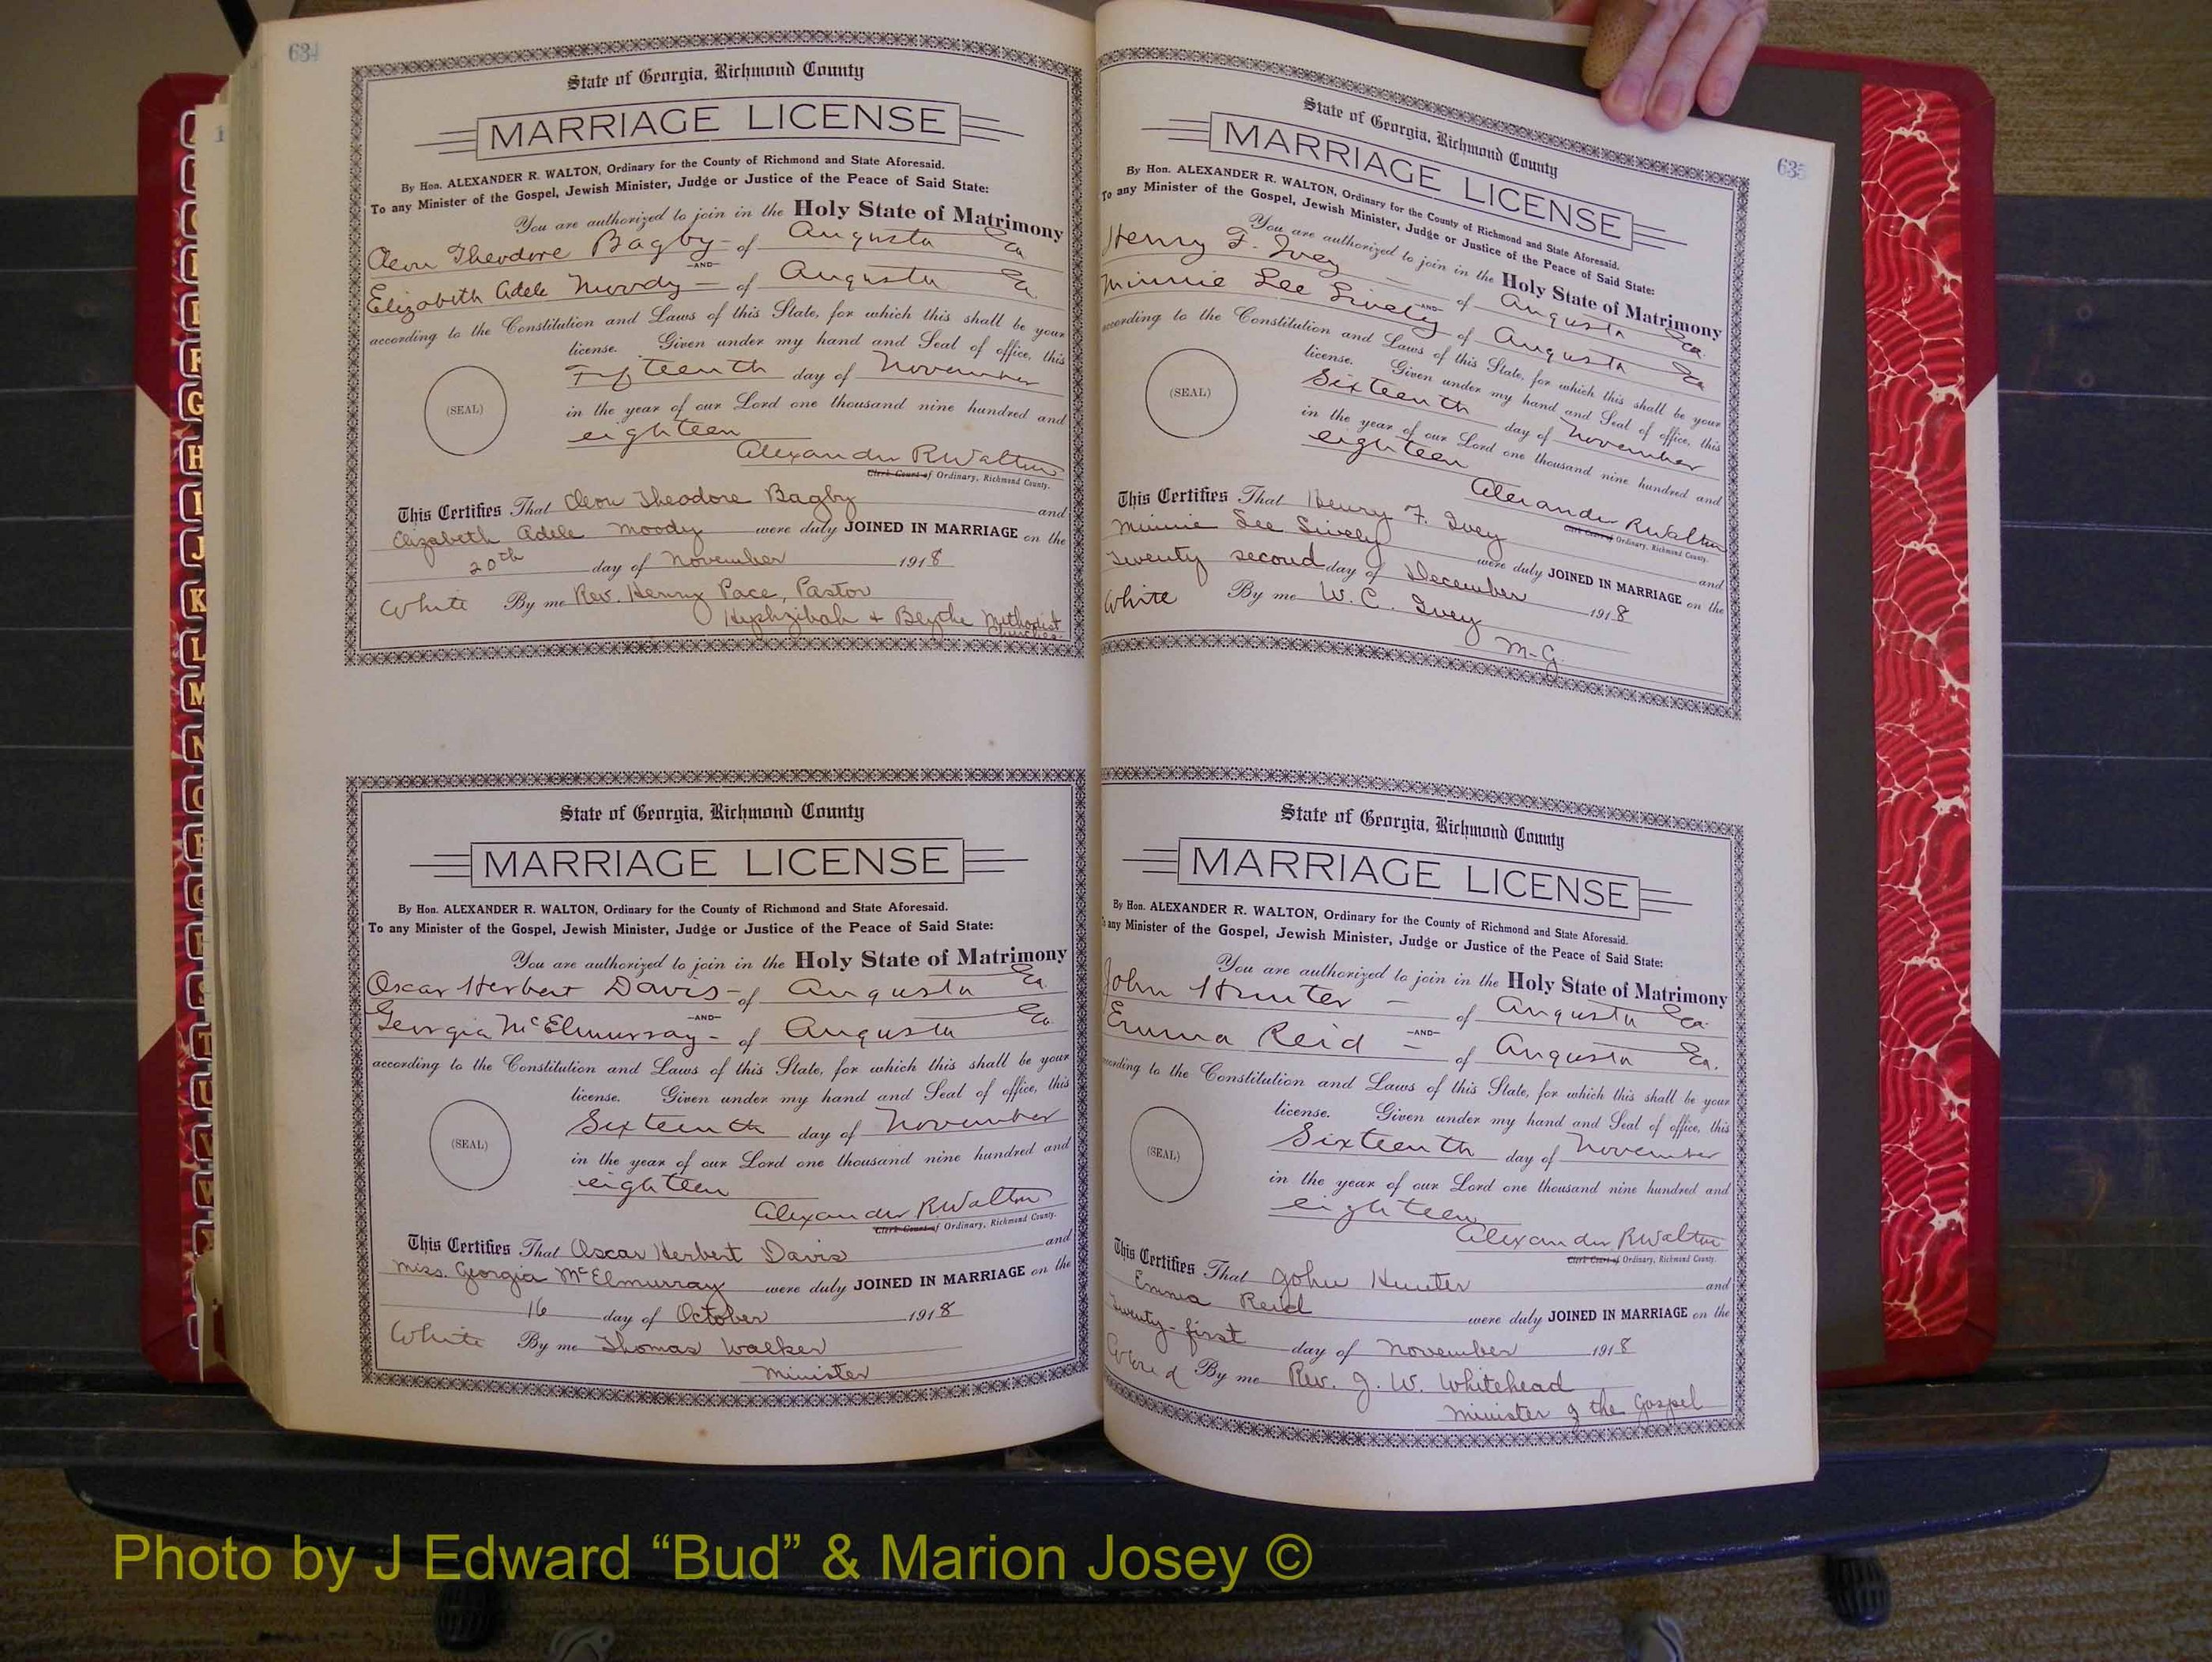 634
State of Georgia, Richmond County
MARRIAGE LICENSE
By Hon. ALEXANDER R. WALTON, Ordinary for the County of Richmond and State Aforesaid.
To any Minister of the Gospel, Jewish Minister, Judge or Justice of the Peace of Said State:
You are authorized to join in the Holy State of Matrimony
Cleon Theodore Bagby - of Augusta Ga
—AND—
Elizabeth Adele Moody - of Augusta Ga.
according to the Constitution and Laws of this State, for which this shall be your
license. Given under my hand and Seal of office, this
Fifteenth day of November
(SEAL)
in the year of our Lord one thousand nine hundred and
eighteen
Alexander R Walton
Clerk Court of Ordinary, Richmond County.
This Certifies That Cleon Theodore Bagby and
Elizabeth Adele Moody were duly JOINED IN MARRIAGE on the
20th day of November 1918
White By me Rev. Henry Pace, Pastor
Hephzibah + Blythe Methodist
Churches
State of Georgia, Richmond County
MARRIAGE LICENSE
By Hon. ALEXANDER R. WALTON, Ordinary for the County of Richmond and State Aforesaid.
To any Minister of the Gospel, Jewish Minister, Judge or Justice of the Peace of Said State:
You are authorized to join in the Holy State of Matrimony
Oscar Herbert Davis - of Augusta Ga.
—AND—
Georgia McElmurray - of Augusta Ga.
according to the Constitution and Laws of this State, for which this shall be your
license. Given under my hand and Seal of office, this
Sixteenth day of November
(SEAL)
in the year of our Lord one thousand nine hundred and
eighteen
Alexander R Walton
Clerk Court of Ordinary, Richmond County.
This Certifies That Oscar Herbert Davis and
Miss. Georgia McElmurray were duly JOINED IN MARRIAGE on the
16 day of October 1918
White By me Thomas Walker
Minister
635
State of Georgia, Richmond County
MARRIAGE LICENSE
By Hon. ALEXANDER R. WALTON, Ordinary for the County of Richmond and State Aforesaid.
To any Minister of the Gospel, Jewish Minister, Judge or Justice of the Peace of Said State:
You are authorized to join in the Holy State of Matrimony
Henry F. Ivey of Augusta Ga.
—AND—
Minnie Lee Lively of Augusta Ga
according to the Constitution and Laws of this State, for which this shall be your
license. Given under my hand and Seal of office, this
Sixteenth day of November
(SEAL)
in the year of our Lord one thousand nine hundred and
eighteen
Alexander R Walton
Clerk Court of Ordinary, Richmond County.
This Certifies That Henry F. Ivey and
Minnie Lee Lively were duly JOINED IN MARRIAGE on the
Twenty second day of December 1918
White By me W. C. Ivey
M-G
State of Georgia, Richmond County
MARRIAGE LICENSE
By Hon. ALEXANDER R. WALTON, Ordinary for the County of Richmond and State Aforesaid.
To any Minister of the Gospel, Jewish Minister, Judge or Justice of the Peace of Said State:
You are authorized to join in the Holy State of Matrimony
John Hunter - of Augusta Ga.
—AND—
Emma Reid - of Augusta Ga.
according to the Constitution and Laws of this State, for which this shall be your
license. Given under my hand and Seal of office, this
Sixteenth day of November
(SEAL)
in the year of our Lord one thousand nine hundred and
eighteen
Alexander R Walton
Clerk Court of Ordinary, Richmond County.
This Certifies That John Hunter and
Emma Reid were duly JOINED IN MARRIAGE on the
Twenty-first day of November 1918
Colored By me Rev. J. W. Whitehead
Minister of the Gospel
Photo by J Edward “Bud” & Marion Josey ©